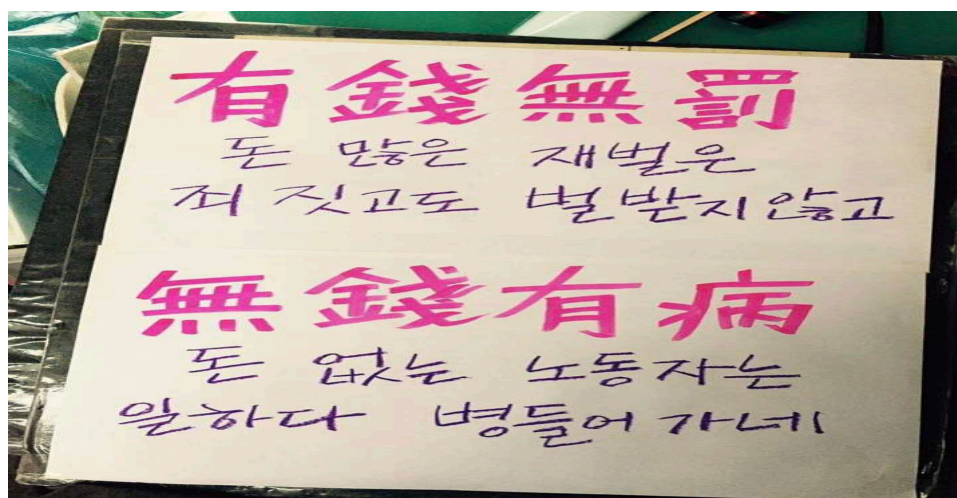 有錢無罰
돈 많은 재벌은
죄 짓고도 벌받지않고
無錢有病
돈 없는 노동자는
일하다 병들어 가네